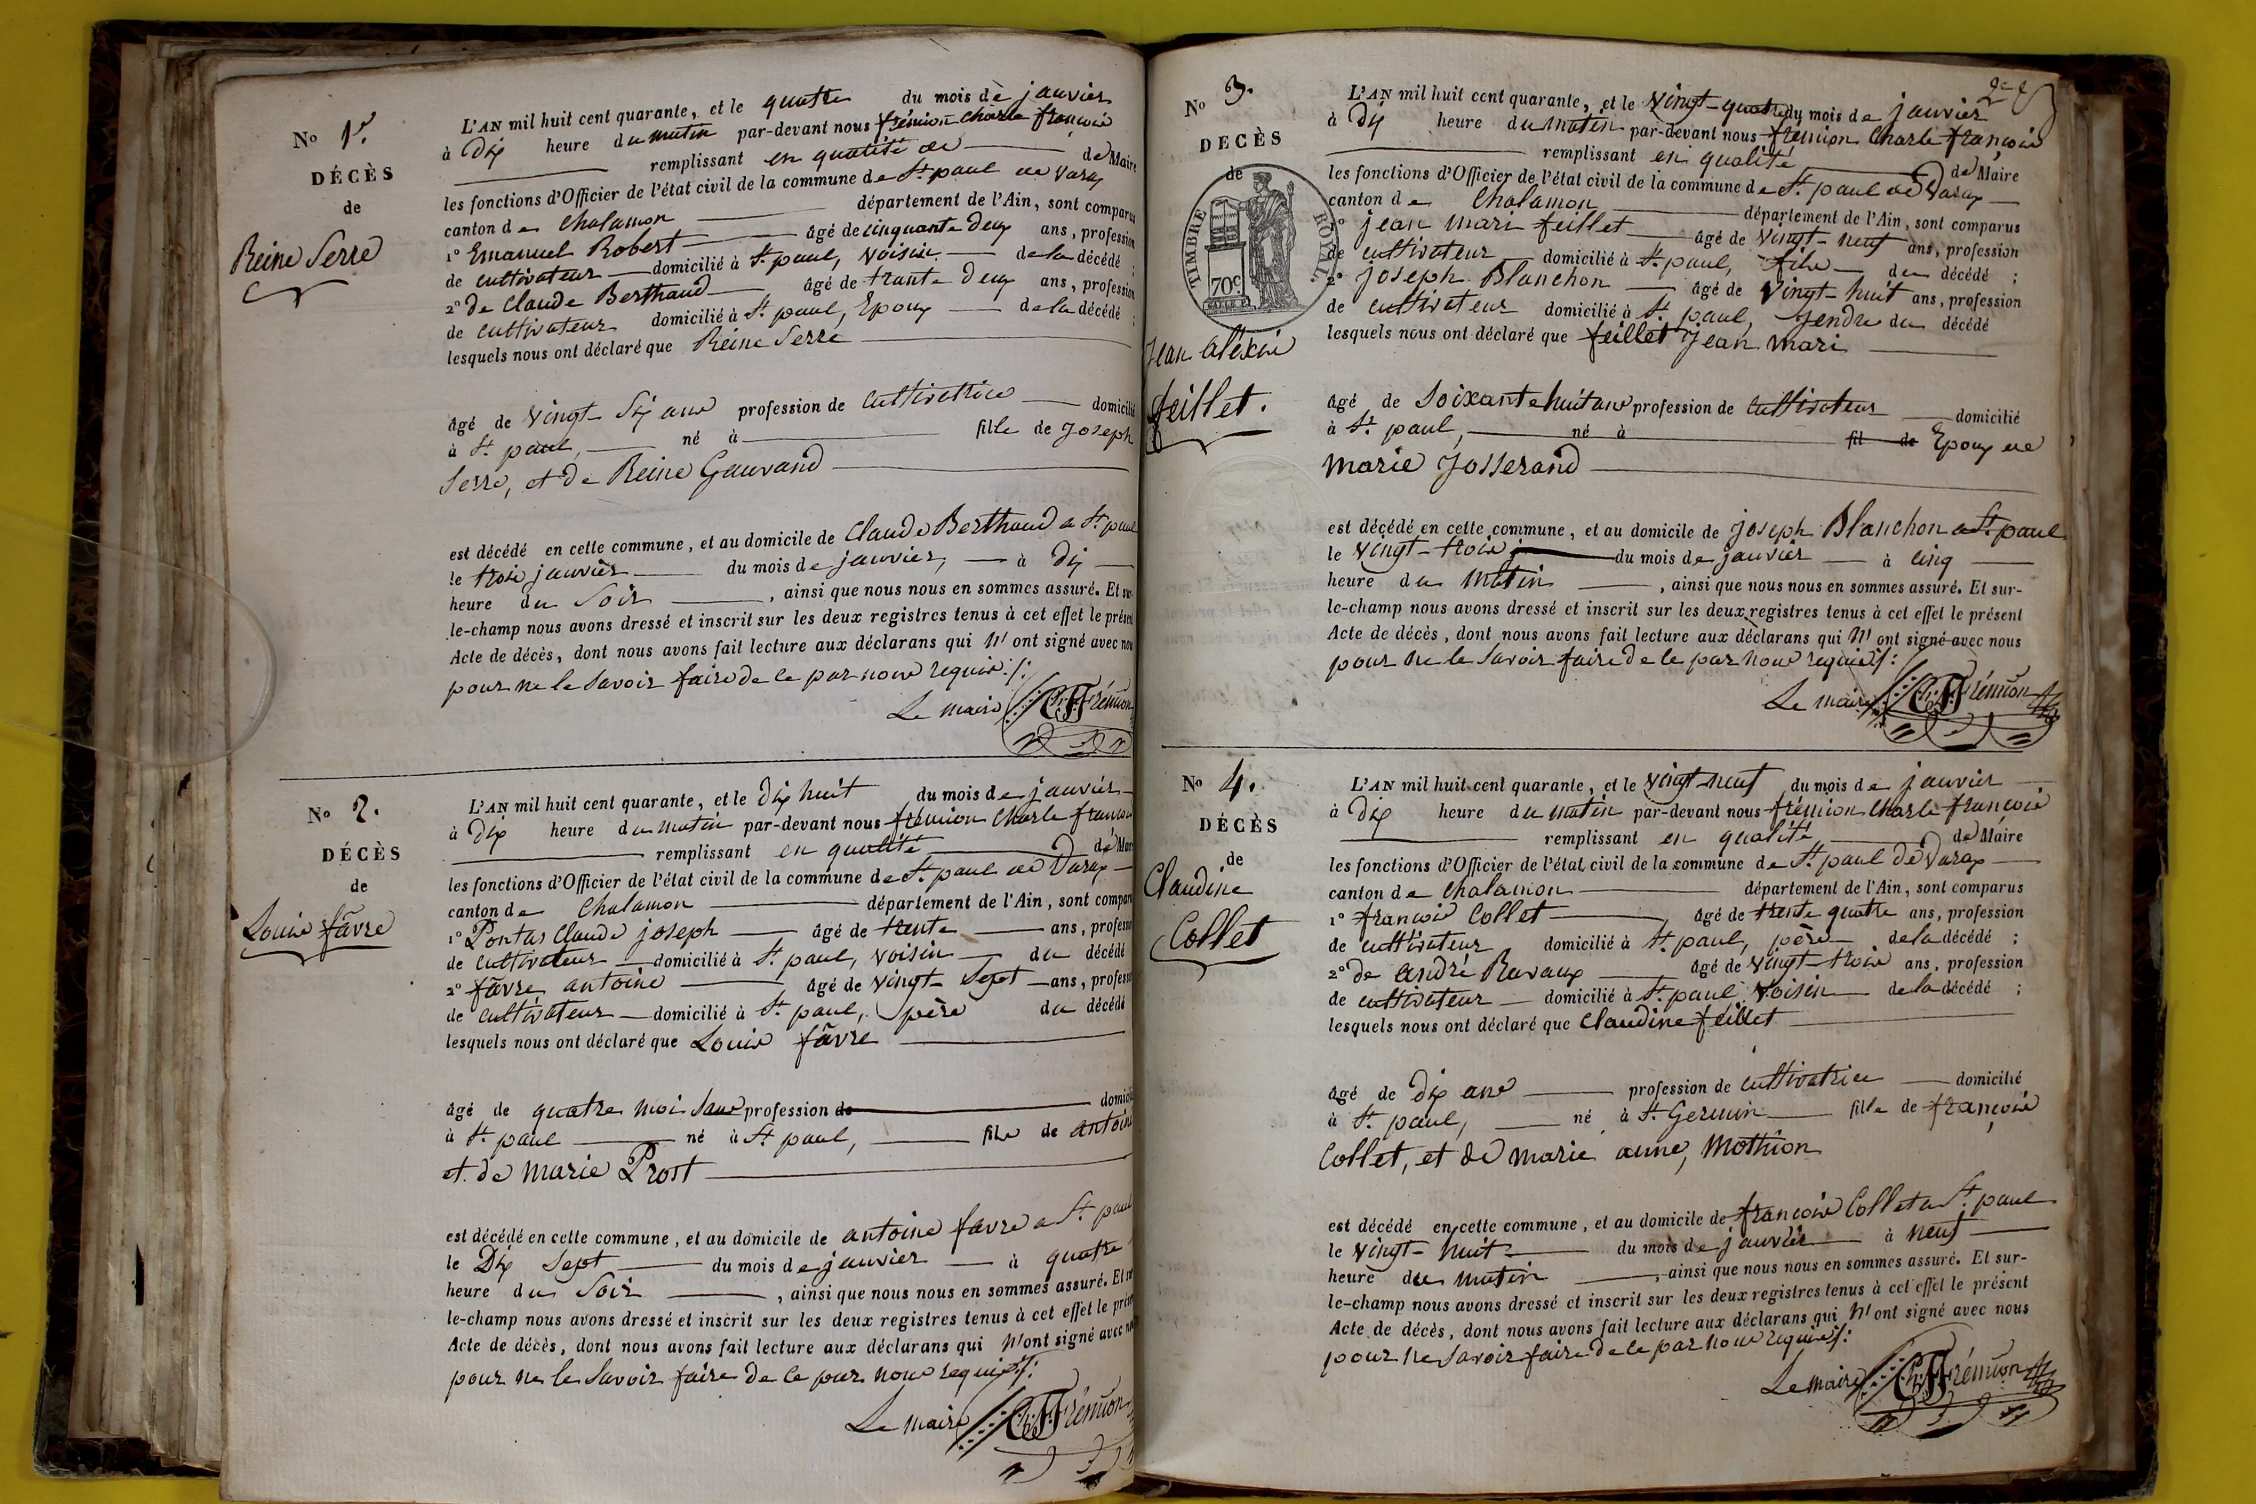 No 1er
DÉCÈS
de
Reine Serre
L'AN mil huit cent quarante, et le quatre du mois de janvier
à dix heure du matin par-devant nous frémion Charle françois
remplissant en qualité de de Maire
les fonctions d'Officier de l'état civil de la commune de St paul de Varax
canton de Chalamon département de l'Ain, sont comparus
1o Emanuel Robert âgé de cinquante deux ans, profession
de cultivateur domicilié à St paul, voisin de la décédé ;
2o de Claude Berthaud âgé de trante deux ans, profession
de cultivateur domicilié à St paul, Epoux de la décédé ;
lesquels nous ont déclaré que Reine Serre
âgé de vingt Six ans profession de cultivatrice domicilié
à St paul, né à fille de Joseph
Serre, et de Reine Gauvand
est décédé en cette commune, et au domicile de Claude Berthaud a St paul
le trois janvier du mois de janvier, à dix
heure du Soir , ainsi que nous nous en sommes assuré. Et sur-
le-champ nous avons dressé et inscrit sur les deux registres tenus à cet effet le présent
Acte de décès, dont nous avons fait lecture aux déclarans qui n' ont signé avec nous
pour ne le Savoir faire de ce par nous requis ./.
Le maire Ch. F. Frémion
No 2.
DÉCÈS
de
Louis fâvre
L'AN mil huit cent quarante, et le dix huit du mois de janvier
à Dix heure du matin par-devant nous frémion Charle françois
remplissant en qualité de Maire
les fonctions d'Officier de l'état civil de la commune de St paul de Varax
canton de Chalamon département de l'Ain, sont comparus
1o Pontas Claude joseph âgé de trente ans, profession
de cultivateur domicilié à St paul, voisin du décédé
2o fâvre antoine âgé de vingt Sept ans, profession
de cultivateur domicilié à St paul, père du décédé
lesquels nous ont déclaré que Louis fâvre
âgé de quatre moi Sans profession de domicilié
à St paul né à St paul, fils de antoine
et de Marie Prost
est décédé en cette commune, et au domicile de antoine favre a St paul
le Dix Sept du mois de janvier à quatre
heure du Soir , ainsi que nous nous en sommes assuré. Et sur-
le-champ nous avons dressé et inscrit sur les deux registres tenus à cet effet le présent
Acte de décès, dont nous avons fait lecture aux déclarans qui n'ont signé avec nous
pour ne le Savoir faire de ce par nous requis ./.
Le maire Ch. F. Frémion
2e f
No 3.
DÉCÈS
de
TIMBRE ROYAL
70c
Jean Aléxis
feillet.
L'AN mil huit cent quarante, et le vingt-quatre du mois de janvier
à Dix heure du matin par-devant nous frémion Charle françois
remplissant en qualité de Maire
les fonctions d'Officier de l'état civil de la commune de St paul de Varax
canton de Chalamon département de l'Ain, sont comparus
1o jean mari feillet âgé de vingt-neuf ans, profession
de cultivateur domicilié à St paul, fils du décédé ;
2o joseph Blanchon âgé de vingt-huit ans, profession
de cultivateur domicilié à St paul, gendre du décédé
lesquels nous ont déclaré que feillet Jean Mari
âgé de Soixante huit ans profession de cultivateur domicilié
à St paul, né à fil de Epoux de
Marie Josserand
est décédé en cette commune, et au domicile de joseph Blanchon a St paul
le vingt-trois du mois de janvier à cinq
heure du Matin , ainsi que nous nous en sommes assuré. Et sur-
le-champ nous avons dressé et inscrit sur les deux registres tenus à cet effet le présent
Acte de décès, dont nous avons fait lecture aux déclarans qui n' ont signé avec nous
pour ne le Savoir faire de ce par nous requis ./.
Le maire Ch. F. Frémion
No 4.
DÉCÈS
de
Claudine
Collet
L'AN mil huit cent quarante, et le vingt-neuf du mois de janvier
à Dix heure du matin par-devant nous frémion Charle françois
remplissant en qualité de Maire
les fonctions d'Officier de l'état civil de la commune de St paul de Varax
canton de Chalamon département de l'Ain, sont comparus
1o françois Collet âgé de trente quatre ans, profession
de cultivateur domicilié à St paul, père de la décédé ;
2o de andré Ravaux âgé de vingt-trois ans, profession
de cultivateur domicilié à St paul voisin de la décédé ;
lesquels nous ont déclaré que Claudine feillet
âgé de Dix ans profession de cultivatrice domicilié
à St paul, né à St Germin fille de françois
Collet, et de Marie anne, Mothion
est décédé en cette commune, et au domicile de françois Collet a St paul
le vingt-huit du mois de janvier à neuf
heure du matin , ainsi que nous nous en sommes assuré. Et sur-
le-champ nous avons dressé et inscrit sur les deux registres tenus à cet effet le présent
Acte de décès, dont nous avons fait lecture aux déclarans qui n' ont signé avec nous
pour ne Savoir faire de ce par nous requis ./.
Le maire Ch. F. Frémion